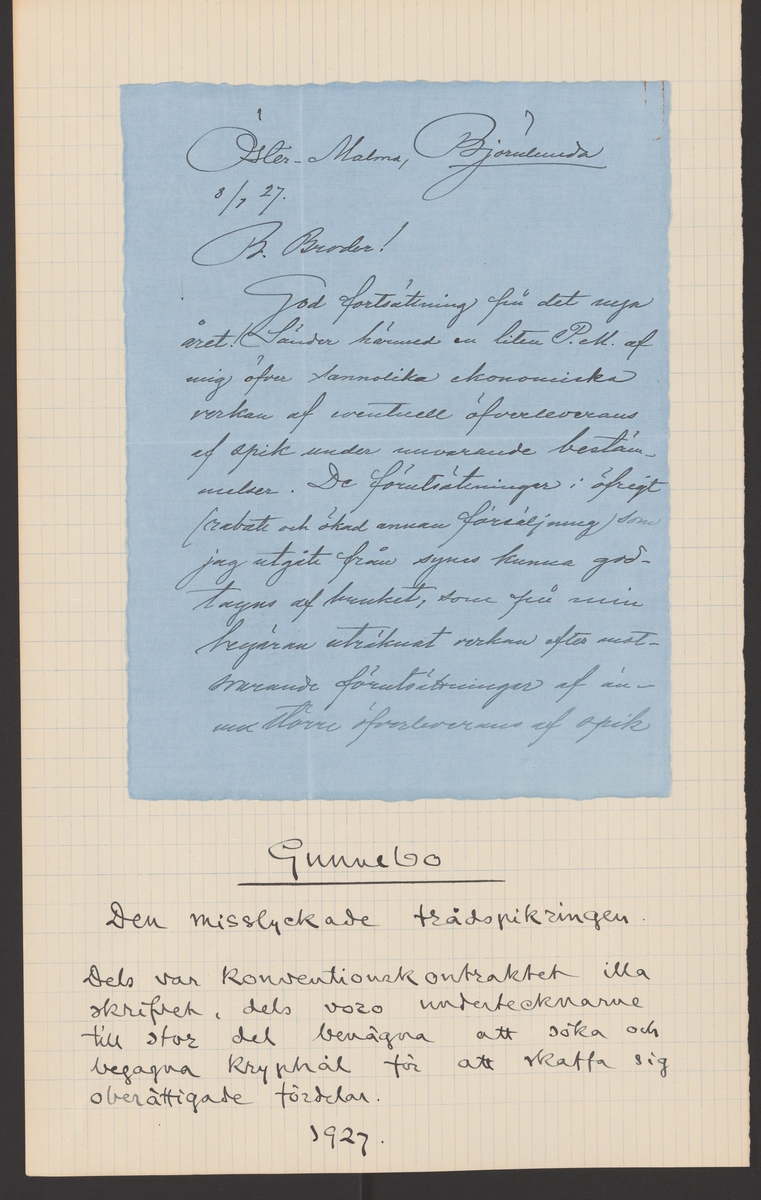 Öster-Malma, Björnlunda
8/1 27.
B. Broder!
God fortsättning på det nya
året! Sänder härmed en liten P.M. af
mig öfver sannolika ekonomiska
verkan af eventuell öfverleverans
af spik under nuvarande bestäm-
melser. De förutsättningar i öfrigt
(rabatt och ökad annan försäljning) som
jag utgått från synes kunna god-
tagas af bruket, som på min
begäran uträknat verkan efter mot-
svarande förutsättningar af än-
nu större öfverleverans af spik
Gunnebo
Den misslyckade trådspikringen.
Dels var konventionskontraktet illa
skrifvet, dels voro undertecknarne
till stor del benägna att söka och
begagna kryphål för att skaffa sig
oberättigade fördelar.
1927.